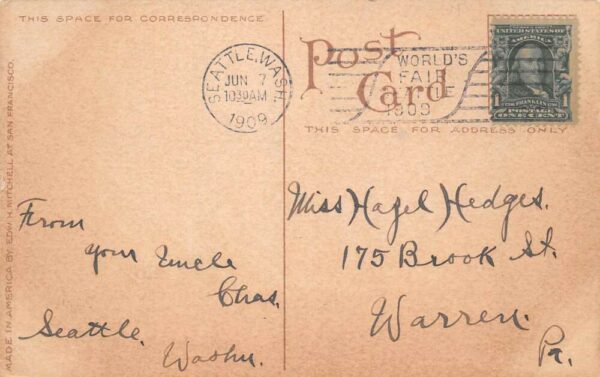 THIS SPACE FOR CORRESPONDENCE
Post Card
THIS SPACE FOR ADDRESS ONLY
SEATTLE, WASH.
JUN 7
1030AM
1909
WORLD'S
FAIR
1909
UNITED STATES OF
AMERICA
FRANKLIN
1 1
POSTAGE
ONE CENT
MADE IN AMERICA BY EDW. H. MITCHELL AT SAN FRANCISCO.
From
your Uncle
Chas.
Seattle.
Washn.
Miss Hazel Hedges.
175 Brook St.
Warren.
Pa.